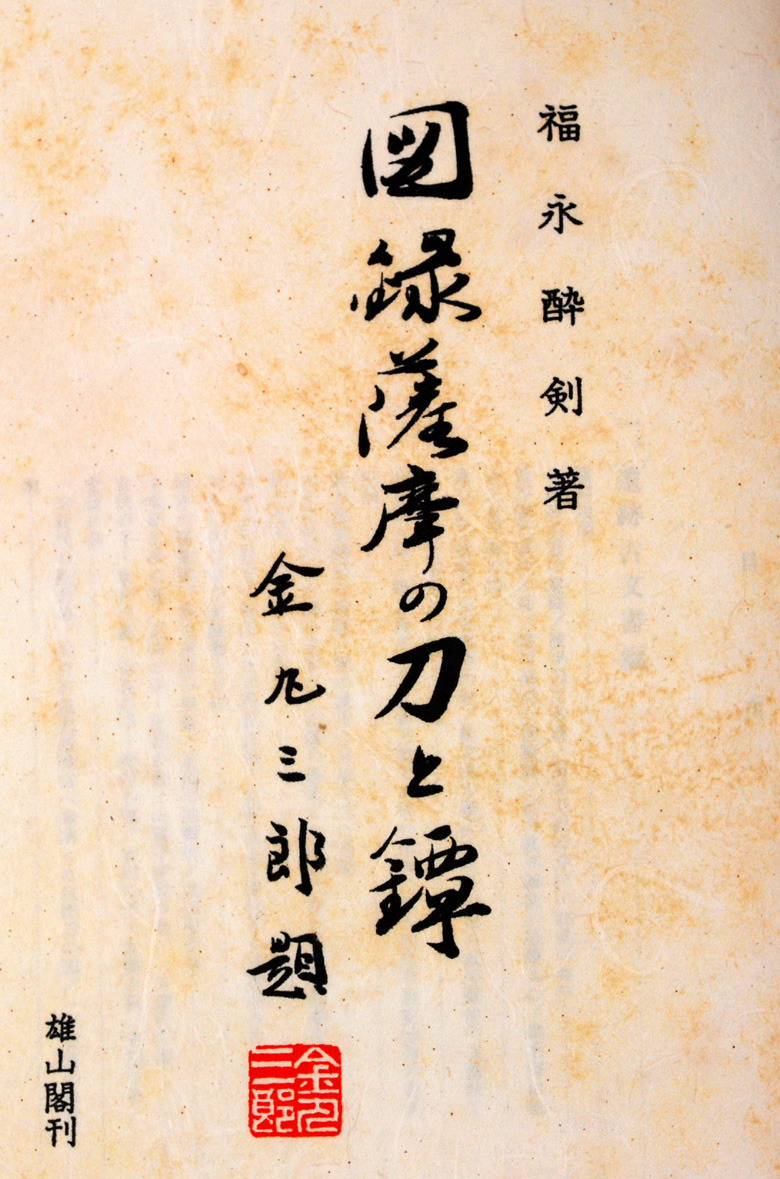 福永酔剣著
図録薩摩の刀と鐔
金丸三郎題
金丸三郎
雄山閣刊